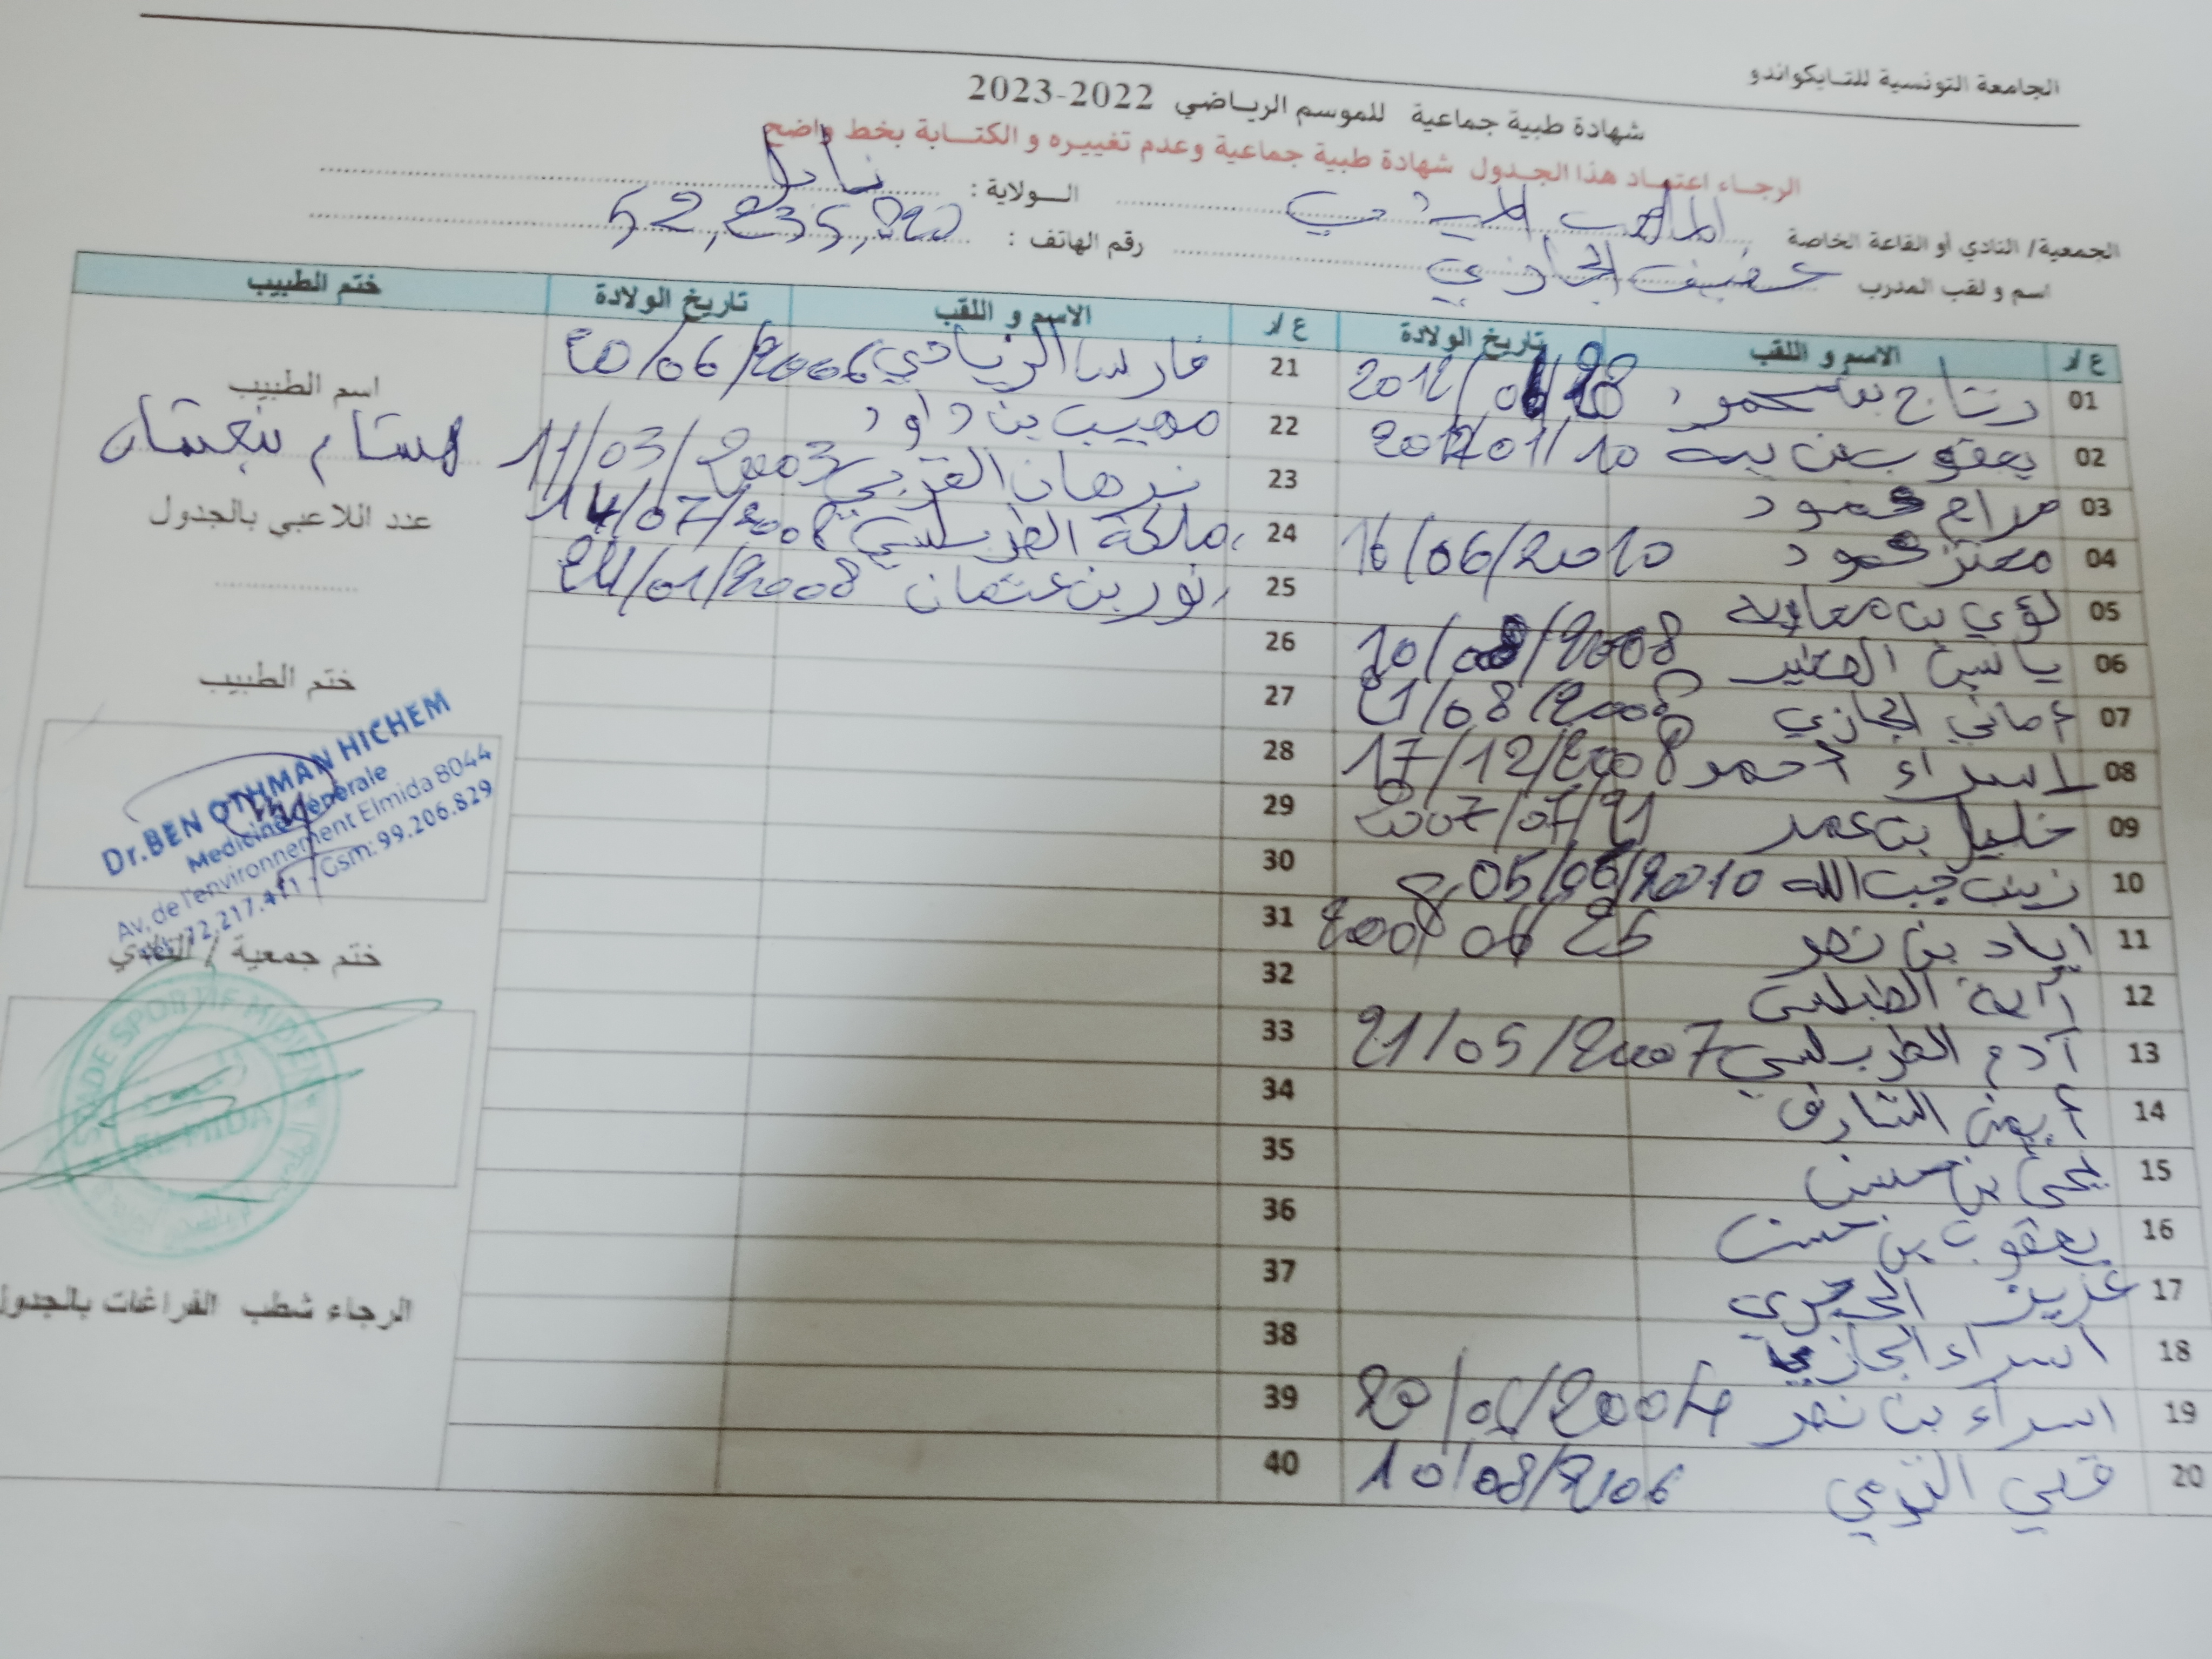 الجامعة التونسية للتايكواندو
شهادة طبية جماعية للموسم الرياضي 2022-2023
الرجاء اعتماد هذا الجدول شهادة طبية جماعية وعدم تغييره و الكتابة بخط واضح
الجمعية/ النادي أو القاعة الخاصة
الولاية : نابل
اسم و لقب المدرب الحجازي
رقم الهاتف :
ع/ر الاسم و اللقب تاريخ الولادة ع/ر الاسم و اللقب تاريخ الولادة ختم الطبيب
01 رتاج بن محمود
02 يعقوب بن يبة
03 مرام محمود
04 معتز محمود 16/06/2010
05 لؤي بن معاوية
06 ياسين 10/08/2008
07 أماني الحجازي 21/08/2008
08 اسراء أحمد 17/12/2008
09 خليل بن عمر 2007/07/21
10 زينب جب الله 05/06/2010
11 اياد بن نصر 2008 06 26
12 آية
13 آدم الطرابلسي 21/05/2007
14 أيمن الشارف
15 يحي بن حسن
16 يعقوب بن حسن
17 عزيز
18 اسراء الحجازي
19 اسراء بن نصر
20 قصي 10/08/2006
21 فارس الزيادي 20/06/2006
22 مهيب بن داود
23 نرهان القربي 11/03/2003
24 ملكة الطرابلسي 14/07/2008
25 نور بن عثمان 24/01/2008
26
27
28
29
30
31
32
33
34
35
36
37
38
39
40
اسم الطبيب
هشام بن عثمان
عدد اللاعبي بالجدول
ختم الطبيب
Dr.BEN OTHMAN HICHEM
Medicine Générale
Av. de l'environnement Elmida 8044
72.217.411 - Gsm: 99.206.829
ختم جمعية / النادي
STADE SPORTIF MIDIEN
EL MIDA
الرجاء شطب الفراغات بالجدول